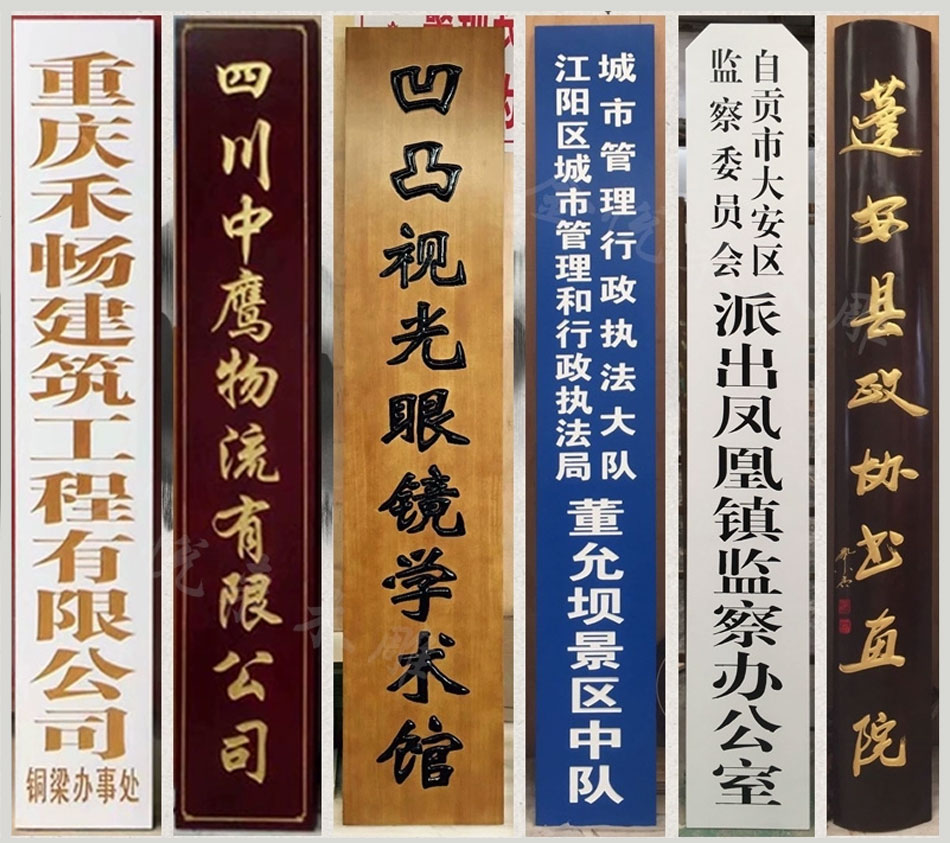 重庆禾畅建筑工程有限公司
铜梁办事处
四川中鹰物流有限公司
凹凸视光眼镜学术馆
江阳区城市管理和行政执法局
城市管理行政执法大队
董允坝景区中队
自贡市大安区
监察委员会
派出凤凰镇监察办公室
蓬安县政协书画院